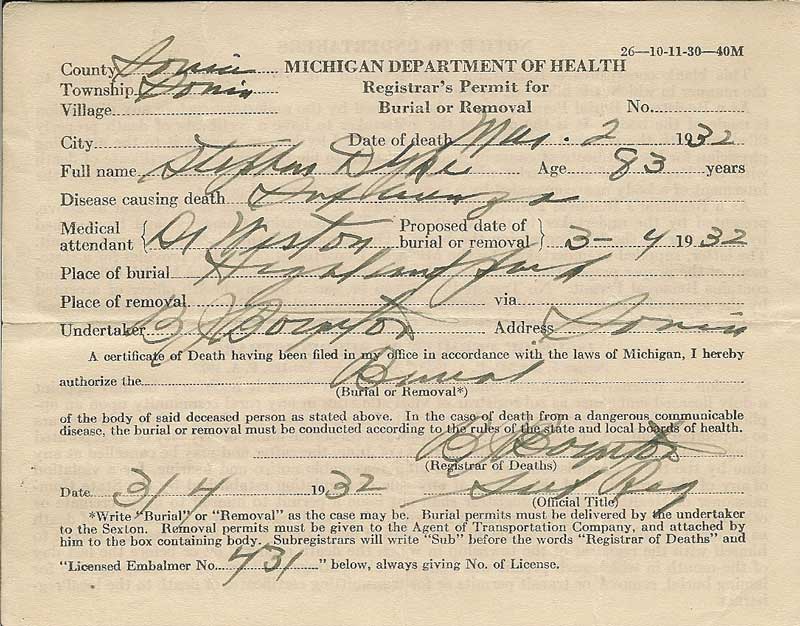 26—10-11-30—40M
County Ionia MICHIGAN DEPARTMENT OF HEALTH
Township Ionia Registrar's Permit for
Village Burial or Removal No.
City Date of death Mar. 2 1932
Full name Stephen Age 83 years
Disease causing death Influenza
Medical attendant { Dr Weston Proposed date of burial or removal } 3-4 1932
Place of burial Highland Park
Place of removal via
Undertaker B Boynton Address Ionia
A certificate of Death having been filed in my office in accordance with the laws of Michigan, I hereby
authorize the Burial
(Burial or Removal*)
of the body of said deceased person as stated above. In the case of death from a dangerous communicable
disease, the burial or removal must be conducted according to the rules of the state and local boards of health.
B Boynton
(Registrar of Deaths)
Date 3/4 1932 Sub Reg
(Official Title)
*Write "Burial" or "Removal" as the case may be. Burial permits must be delivered by the undertaker
to the Sexton. Removal permits must be given to the Agent of Transportation Company, and attached by
him to the box containing body. Subregistrars will write "Sub" before the words "Registrar of Deaths" and
"Licensed Embalmer No. 431" below, always giving No. of License.